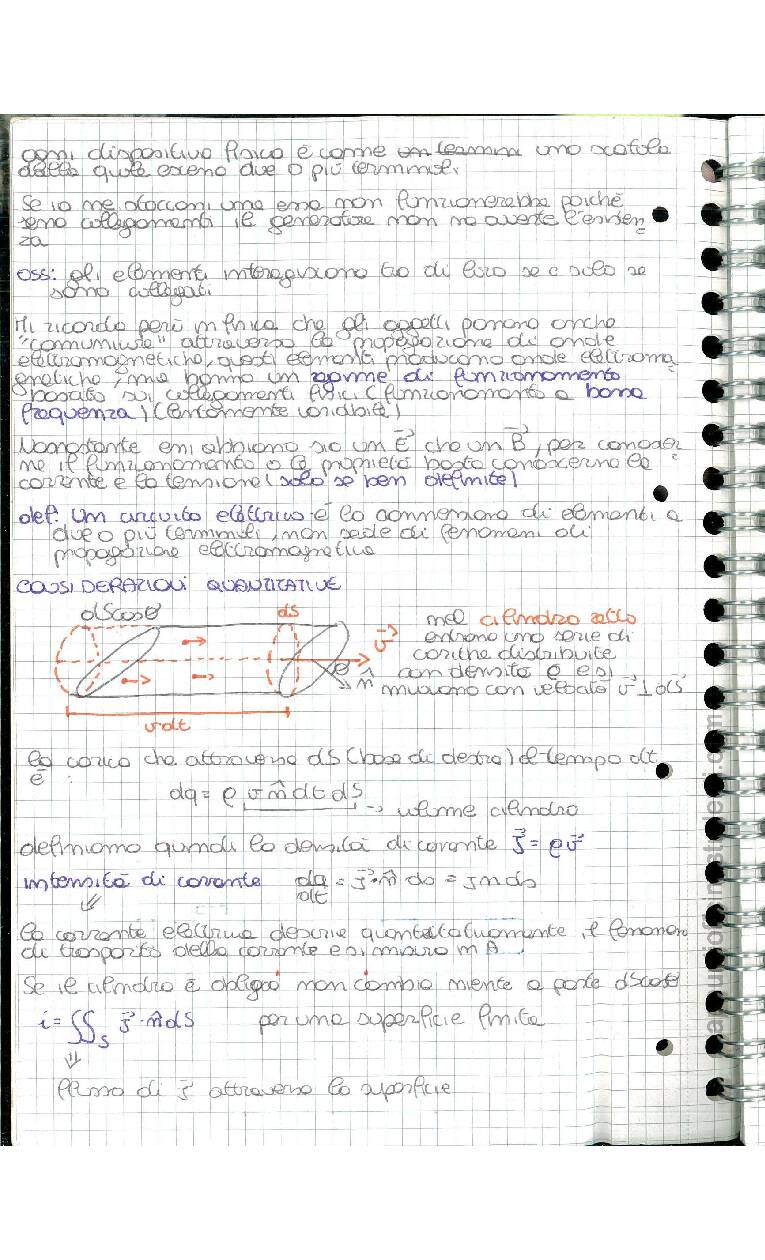 ogni dispositivo fisico è come un termina uno scatola
dalla quale escono due o più terminali.
Se io ne staccassi uno esso non funzionerebbe poiché
senza collegamenti il generatore non ne avverte l'esisten
za
oss: gli elementi interagiscono tra di loro se e solo se
sono collegati
Mi ricordo però in fisica che gli oggetti possono anche
"comunicare" attraverso la propagazione di onde
elettromagnetiche, questi elementi producono onde elettroma
gnetiche, ma hanno un regime di funzionamento
basato sui collegamenti fisici (funzionamento a bassa
frequenza) (lentamente variabile)
Nonostante essi abbiamo sia un E⃗ che un B⃗, per conoscer
ne il funzionamento o le proprietà basta conoscerne la
corrente e la tensione (solo se ben definite)
def: Un circuito elettrico è la connessione di elementi a
due o più terminali, non sede di fenomeni di
propagazione elettromagnetica
CONSIDERAZIONI QUANTITATIVE
dScosθ dS
nel cilindro retto
entrano una serie di
cariche distribuite
con densità ρ e si
muovono con velocità v⃗ ⊥ dS
v⃗
θ
n̂
vdt
la carica che attraversa dS (base di destra) al tempo dt
è :
dq = ρ v⃗ n̂ dt dS
→ volume cilindro
definiamo quindi la densità di corrente J⃗ = ρv⃗
intensità di corrente dq/dt = J⃗·n̂ ds = Jn ds
⇓
la corrente elettrica descrive quantitativamente il fenomeno
di trasporto della corrente e si misura in A.
Se il cilindro è obliquo non cambia niente a parte dScosθ
i = ∬S J⃗·n̂ dS per una superficie finita
⇓
flusso di J⃗ attraverso la superficie